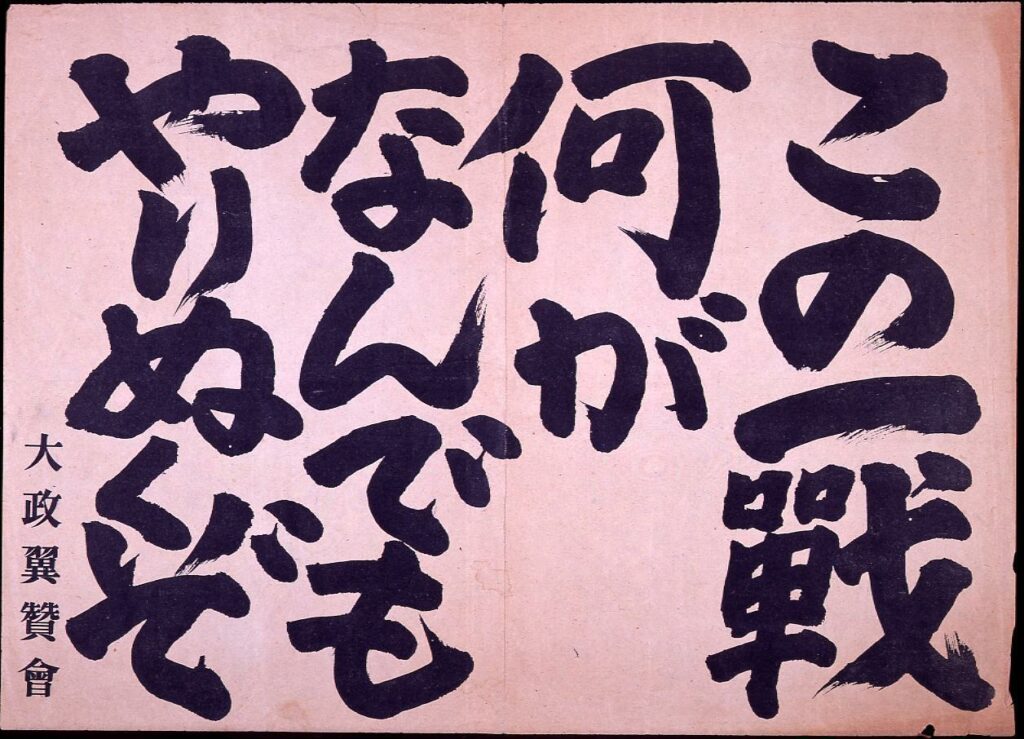 この一戰
何が
なんでも
やりぬくぞ
大政翼贊會